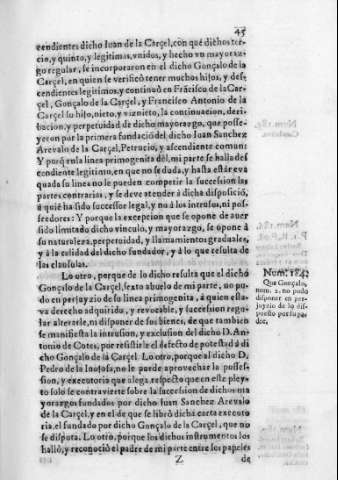 45
cendientes dicho Iuan de la Carçel, con què dichos ter-
cio, y quinto, y legitimas, vnidos, y hecho vn mayoraz-
go regular, se incorporaron en el dicho Gonçalo de la Car-
çel, en quien se verificò tener muchos hijos, y des-
cendientes legitimos, y continuò en Frãcisco de la Car-
çel, Gonçalo de la Carçel, y Francisco Antonio de la
Carçel su hijo, nieto, y viznieto, la continuacion, deri-
bacion, y perpetuidad de dicho mayorazgo, que posse-
yeron por la primera fundaciõ del dicho Iuan Sanchez
Arevalo de la Carçel, Petrucio, y ascendiente comun:
Y porq̃ en la linea primogenita dèl, mi parte se halla des
cendiente legitimo, en que no se duda, y hasta estàr eva
quada su linea no le pueden competir la succession las
partes contrarias, y se deve atender à dicha disposiciõ,
à quiè ha sido successor legal, y no à los intrusos, ni pos-
seedores: Y porque la excepcion que se opone de aver
sido limitado dicho vinculo, y mayorazgo, se opone à
su naturaleza, perpetuidad, y llamamientos graduales,
y à la calidad del dicho fundador, y à lo que resulta de
las clausulas.
Lo otro, porque de lo dicho resulta que el dicho
Gonçalo de la Carçel, sexto abuelo de mi parte, no pu-
do en perjuyzio de su linea primogenita, à quien esta-
va derecho adquirido, y revocable, y succession regu-
lar alterarle, ni disponer de sus bienes, de que tambien
se manifiesta la intrusion, y exclusion del dicho D. An-
tonio de Cotes, por resistirle el defecto de potestad à di
cho Gonçalo de la Carçel. Lo otro, porque al dicho D.
Pedro de la Inojosa, no le puede aprovechar la posses-
sion, y executorio que alega, respecto que en este pley-
to solo se contravierte sobre la succession de dichos ma
yorazgos fundados por dicho Iuan Sanchez Arevalo
de la Carçel, y en el de que se librò dicha carta executo
ria, el fundado por dicho Gonçalo de la Carçel, que no
se disputa. Lo otro, porque los dichos instrumentos los
hallò, y reconociò el padre de mi parte entre los papeles
Z
de
Num. 184.
Que Gonçalo,
num. 2. no pudo
disponer en per-
juyzio de lo dis-
puesto por su pa-
dre.